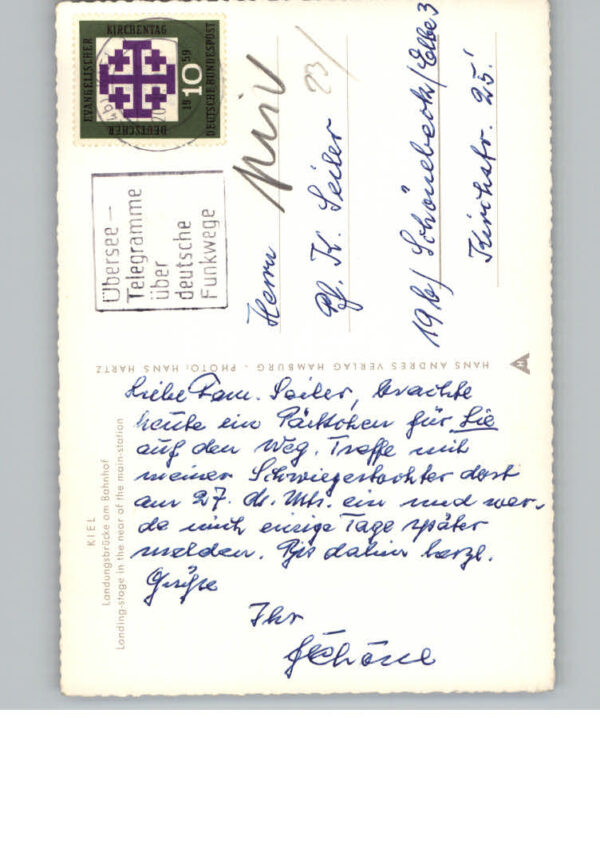 EVANGELISCHER
KIRCHENTAG
1959
DEUTSCHE BUNDESPOST
DEUTSCHER
10
Übersee –
Telegramme
über
deutsche
Funkwege
23/
Herrn
Pf. K. Seiler
19b/ Schönebeck/Elbe 3
Kirchstr. 25.
HANS ANDRES VERLAG HAMBURG - PHOTO: HANS HARTZ
KIEL
Landungsbrücke am Bahnhof
Landing-stage in the near of the main-station
Liebe Fam. Seiler, brachte
heute ein Päckchen für Sie
auf den Weg. Treffe mit
meiner Schwiegertochter dort
am 27. ds. Mts. ein und wer-
de mich einige Tage später
melden. Bis dahin herzl.
Grüße
Ihr